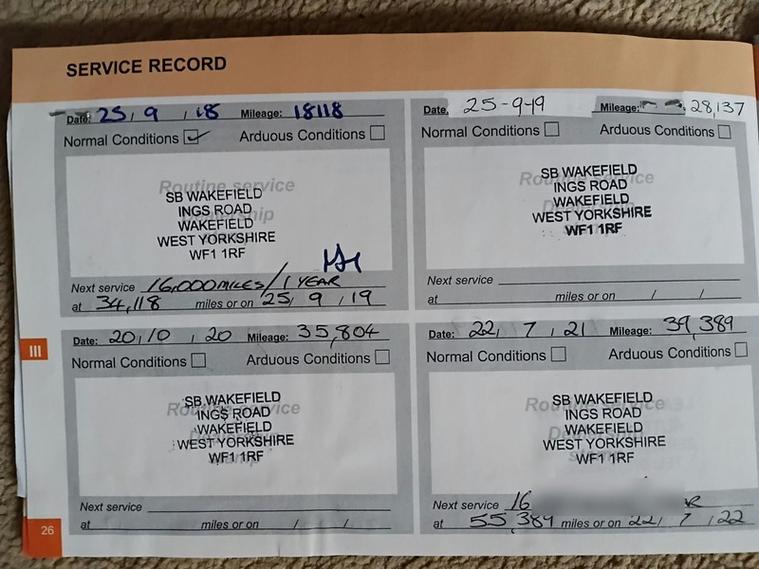 SERVICE RECORD
Date: 25, 9, 18 Mileage: 18118
Normal Conditions Arduous Conditions
Routine service
SB WAKEFIELD
INGS ROAD
WAKEFIELD
WEST YORKSHIRE
WF1 1RF
Next service 16,000 MILES / 1 YEAR
at 34,118 miles or on 25, 9, 19
Date. 25-9-19 Mileage: 28,137
Normal Conditions Arduous Conditions
Routine service
SB WAKEFIELD
INGS ROAD
WAKEFIELD
WEST YORKSHIRE
WF1 1RF
Next service
at miles or on / /
III
Date: 20, 10, 20 Mileage: 35,804
Normal Conditions Arduous Conditions
Routine service
SB WAKEFIELD
INGS ROAD
WAKEFIELD
WEST YORKSHIRE
WF1 1RF
Next service
at miles or on / /
Date: 22, 7, 21 Mileage: 39,389
Normal Conditions Arduous Conditions
SB WAKEFIELD
INGS ROAD
WAKEFIELD
WEST YORKSHIRE
WF1 1RF
Next service 16
at 55,389 miles or on 22, 7, 22
26